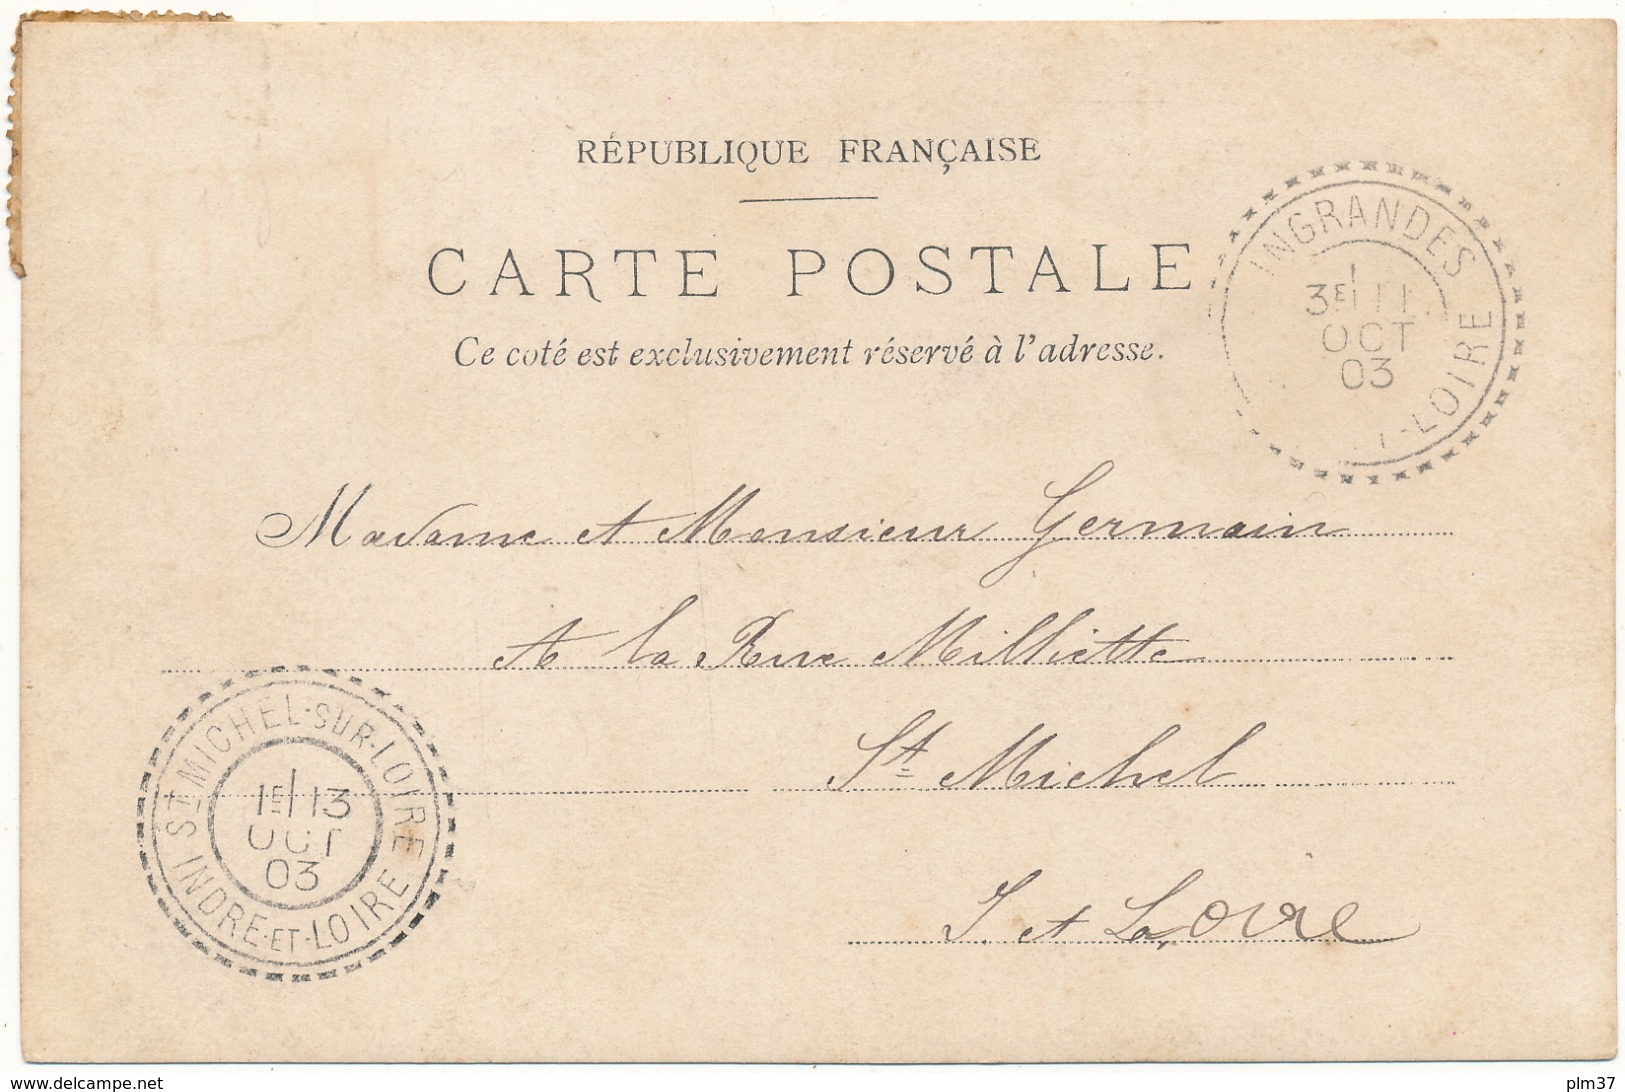 RÉPUBLIQUE FRANÇAISE
CARTE POSTALE
Ce coté est exclusivement réservé à l'adresse.
INGRANDES
3E 11
OCT
03
LOIRE
Madame et Monsieur Germain
A la Rue Milliette
St Michel
I. et Loire
ST MICHEL-SUR-LOIRE
1E 13
OCT
03
INDRE-ET-LOIRE
www.delcampe.net
plm37